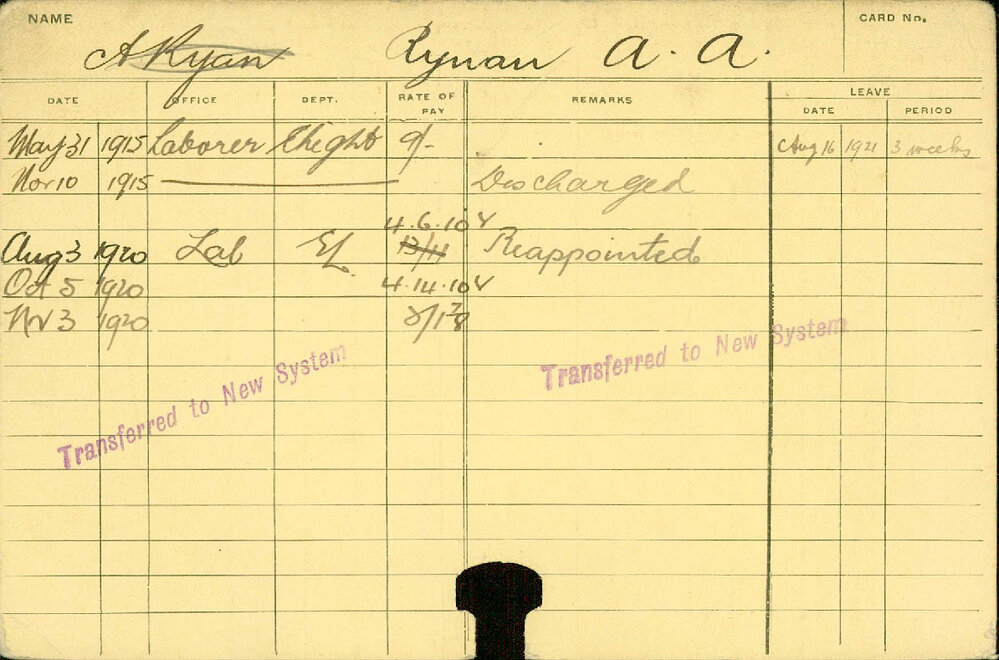 NAME
CARD No.
A Ryan Rynan A. A.
DATE OFFICE DEPT. RATE OF PAY REMARKS LEAVE
DATE PERIOD
May 31 1915 Laborer Elight 9/- Aug 16 1921 3 weeks
Nov 10 1915 Discharged
4.6.10
Aug 3 1920 Lab EL 13/11 Reappointed
Oct 5 1920 4.14.10
Nov 3 1920
Transferred to New System
Transferred to New System